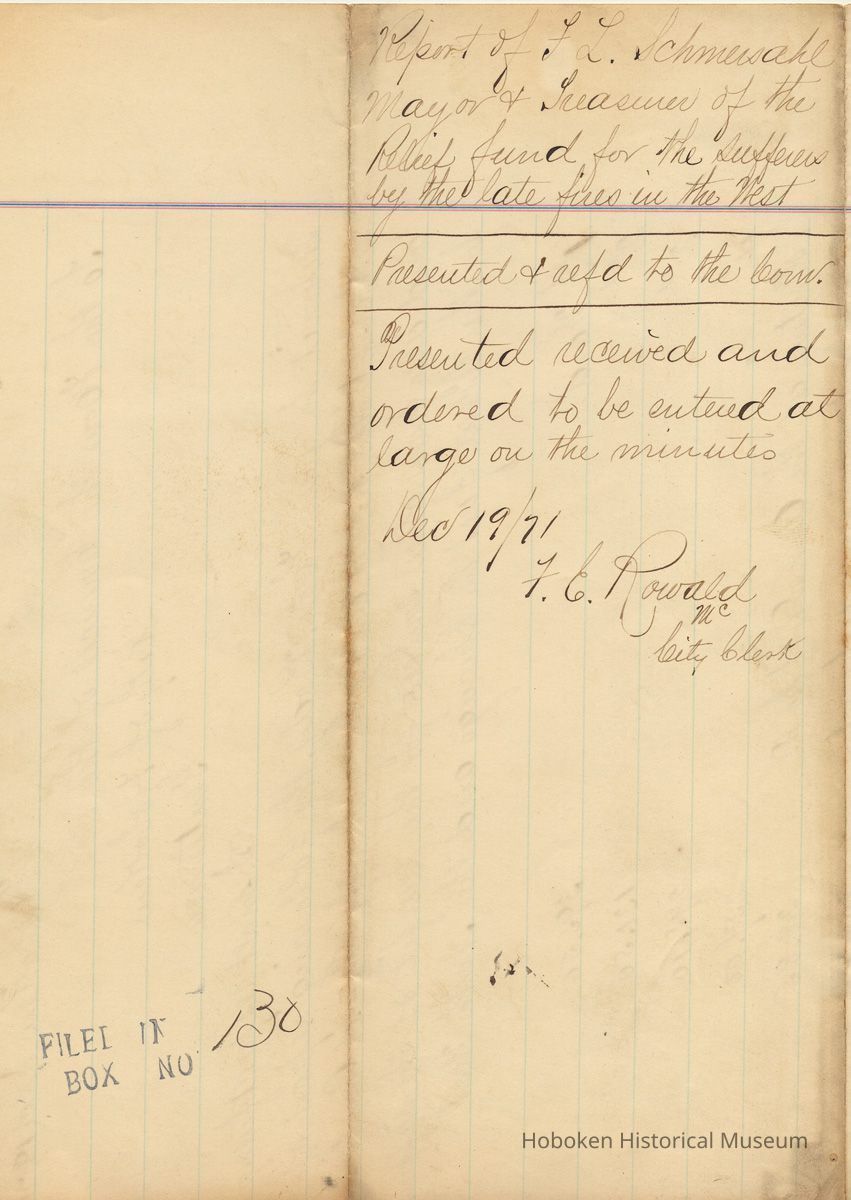 Report of F L. Schmersahl
Mayor & Treasurer of the
Relief fund for the sufferers
by the late fires in the West
Presented & refd to the Com.
Presented received and
ordered to be entered at
large on the minutes
Dec 19/71
F. E. Rowald
Mc
City Clerk
FILED IN
BOX NO 130
Hoboken Historical Museum